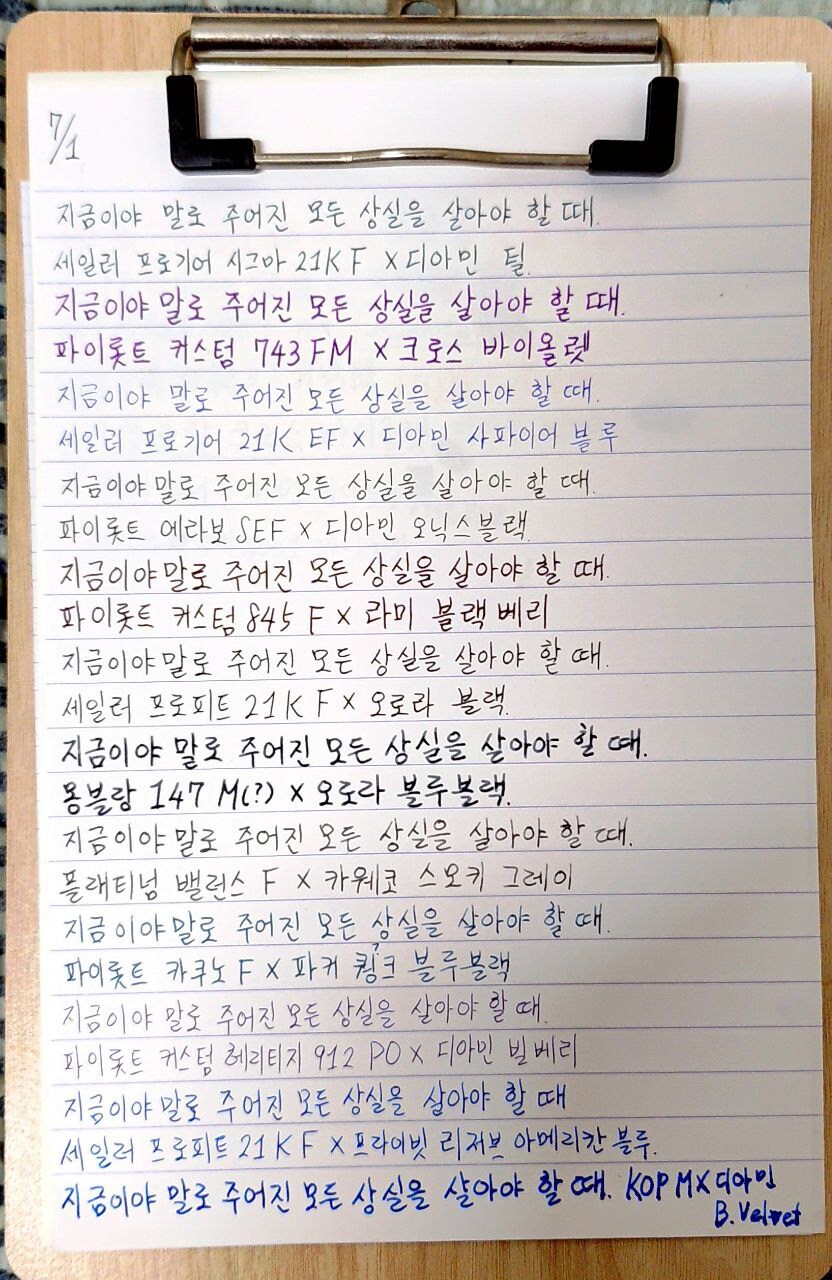 7/1
지금이야 말로 주어진 모든 상실을 살아야 할 때.
세일러 프로기어 시그마 21K F X 디아민 틸.
지금이야 말로 주어진 모든 상실을 살아야 할 때.
파이롯트 커스텀 743 FM X 크로스 바이올렛
지금이야 말로 주어진 모든 상실을 살아야 할 때.
세일러 프로기어 21K EF X 디아민 사파이어 블루
지금이야 말로 주어진 모든 상실을 살아야 할 때.
파이롯트 에라보 SEF X 디아민 오닉스블랙.
지금이야 말로 주어진 모든 상실을 살아야 할 때.
파이롯트 커스텀 845 F X 라미 블랙베리
지금이야 말로 주어진 모든 상실을 살아야 할 때.
세일러 프로피트 21K F X 오로라 블랙.
지금이야 말로 주어진 모든 상실을 살아야 할 때.
몽블랑 147 M(?) X 오로라 블루블랙.
지금이야 말로 주어진 모든 상실을 살아야 할 때.
플래티넘 밸런스 F X 카웨코 스모키 그레이
지금이야 말로 주어진 모든 상실을 살아야 할 때.
파이롯트 카쿠노 F X 파커 큉크 블루블랙
지금이야 말로 주어진 모든 상실을 살아야 할 때.
파이롯트 커스텀 헤리티지 912 PO X 디아민 빌베리
지금이야 말로 주어진 모든 상실을 살아야 할 때
세일러 프로피트 21K F X 프라이빗 리저브 아메리칸 블루.
지금이야 말로 주어진 모든 상실을 살아야 할 때. KOP M X 디아민
B. Velvet